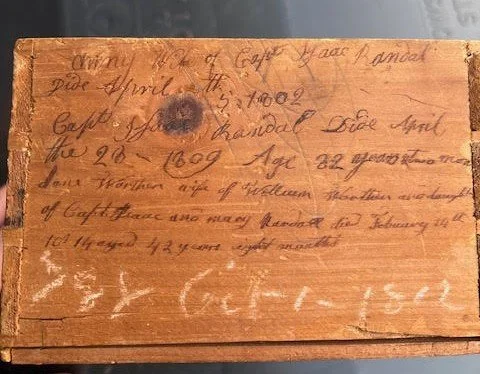 Wife of Capt Isaac Randal
Dide April 5th 1802
Capt Isaac Randal Dide April
the 28 - 1809 Age 82 years two mon
Worthen wife of William Worthen and daught
of Capt Isaac and mary Randall died February 14th
aged 42 years eight months
Oct 1 - 1812